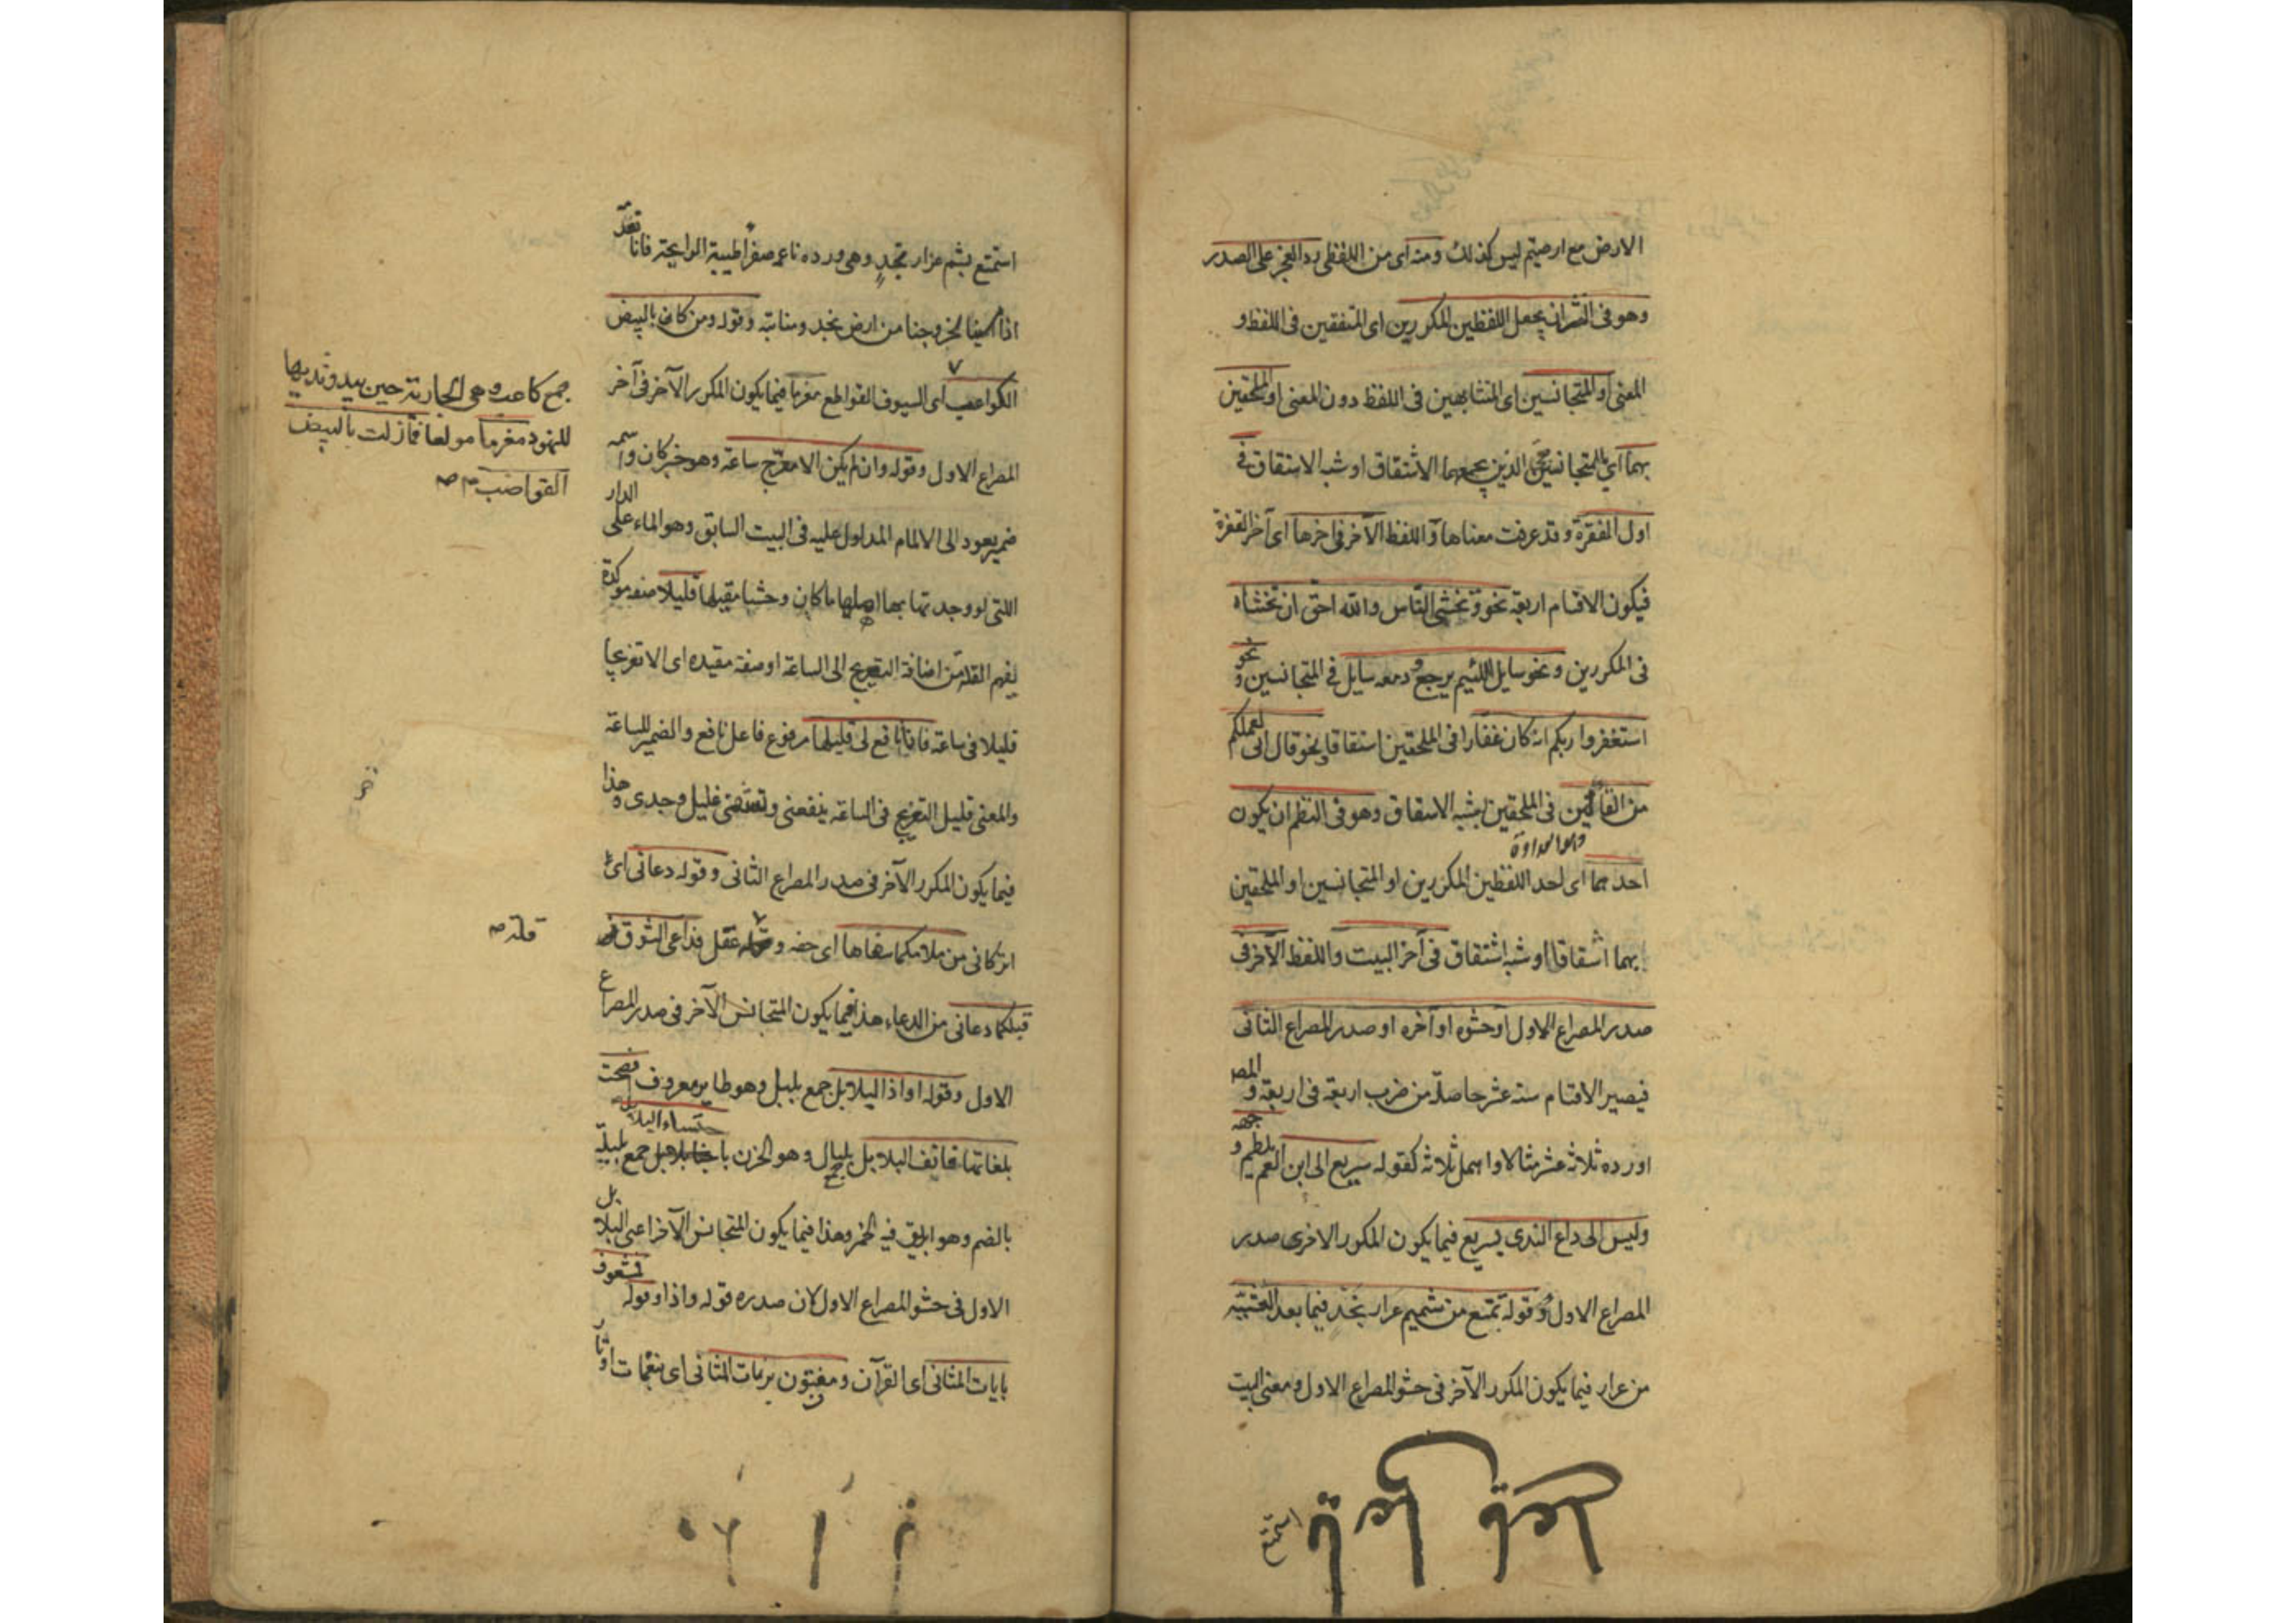 الارض مع ارضيتم ليس كذلك ومنه اى من اللفظى رد العجز على الصدر
وهو فى النثر ان يجعل اللفظين المكررين اى المتفقين فى اللفظ و
المعنى او المتجانسين اى المتشابهين فى اللفظ دون المعنى او الملحقين
بهما اى بالمتجانسين الذين يجمعهما الاشتقاق او شبه الاشتقاق فى
اول الفقرة وقد عرفت معناها واللفظ الآخر فى اخرها اى آخر الفقرة
فيكون الاقسام اربعة نحو وتخشى الناس والله احق ان تخشاه
فى المكررين ونحو سايل اللئيم يرجع ودمعه سايل فى المتجانسين ونحو
استغفروا ربكم انه كان غفارا فى الملحقين اشتقاقا ونحو قال انى لعملكم
من القالين فى الملحقين بشبه الاشتقاق وهو فى النظم ان يكون
احدهما اى احد اللفظين المكررين او المتجانسين او الملحقين
بهما اشتقاقا او شبه اشتقاق فى آخر البيت واللفظ الآخر فى
صدر المصراع الاول او حشوه او آخره او صدر المصراع الثانى
فيصير الاقسام ستة عشر حاصلة من ضرب اربعة فى اربعة والمص
اورده ثلاثة عشر مثالا واهمل ثلاثة كقوله سريع الى ابن العم يلطم وجهه
وليس الى داع الندى بسريع فيما يكون المكرر الاخر فى صدر
المصراع الاول وقوله تمتع من شميم عرار نجد فيما بعد العشية
من عرار فيما يكون المكرر الآخر فى حشو المصراع الاول ومعنى البيت
استمتع
استمتع بشم عرار نجد وهى ورده ناعمه صفراء طيبة الرايحة فانا نفقد
اذا امسينا لخروجنا من ارض نجد ومنابته وقوله ومن كان بالبيض
الكواعب اى السيوف القواطع مغرما فيما يكون المكرر الآخر فى آخر
المصراع الاول وقوله وان لم يكن الا معرج ساعة وهو خبر كان واسمه
ضمير يعود الى الالمام المدلول عليه فى البيت السابق وهو الماء على الدار
اللتى لو وجدتما بها اهلها ما كان وحشا مقيلها قليلا صفه موكدة
لفهم القلة من اضافة التعريج الى الساعة او صفة مقيده اى الا تعريجا
قليلا فى ساعة فانا نافع لى قليلها مرفوع فاعل نافع والضمير للساعة
والمعنى قليل التعريج فى الساعة ينفعنى غليل وجدى وهذا
فيما يكون المكرر الآخر فى صدر المصراع الثانى وقوله دعانى اى
اتركانى من ملامكما سفاها اى خفه عقل فداعى الشوق
قبلكما دعانى من الدعاء هذا فيما يكون المتجانس الآخر فى صدر المصراع
الاول وقوله اواذا البلابل جمع بلبل وهو طاير معروف افصحت
بلغاتها فانف البلابل بلبال وهو الحزن باحتساء البلابل جمع بلبلة
بالضم وهو ابريق فيه الخمر وهذا فيما يكون المتجانس الآخر اعنى البلابل
الاول فى حشو المصراع الاول لان صدره قوله واذا وقوله فمشغوف
بايات المثانى اى القرآن ومفتون برنات المثانى اى بنغمات اوتار
جمع كاعب وهى الجارية حين يبدو ثديها
للنهود مغرما مولعا فما زلت بالبيض
القواضب